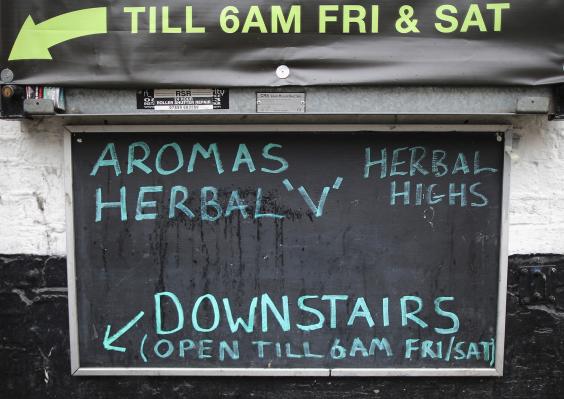 TILL 6AM FRI & SAT
RSR
24 HOUR
ROLLER SHUTTER REPAIR
AROMAS
HERBAL 'V'
HERBAL
HIGHS
DOWNSTAIRS
(OPEN TILL 6AM FRI/SAT)